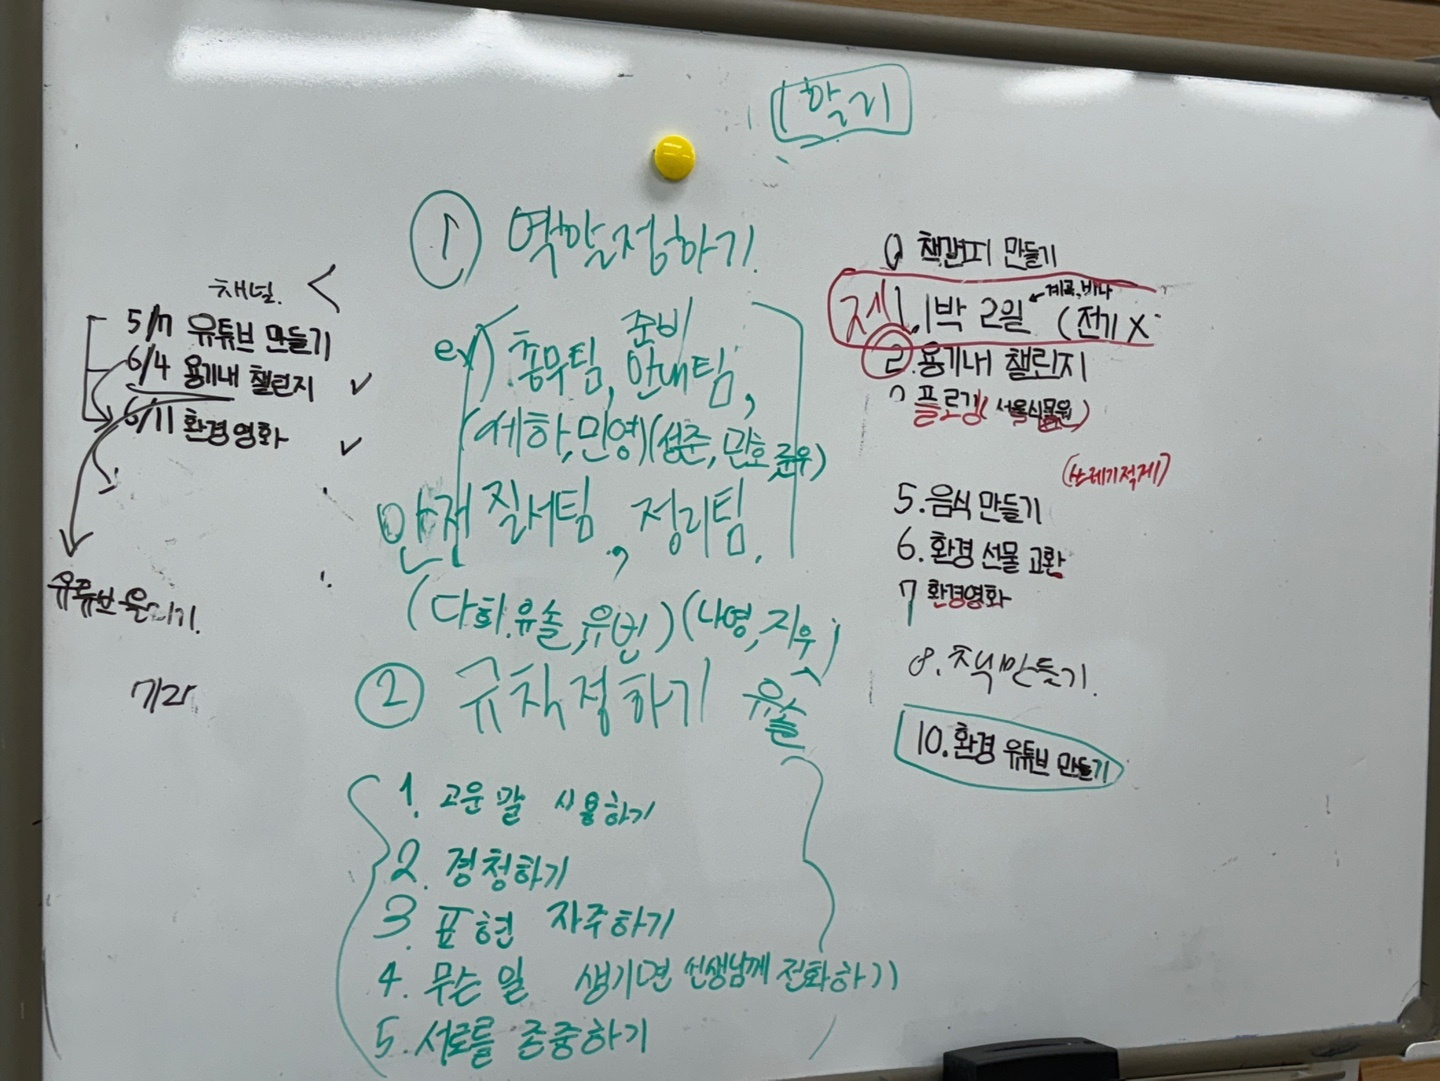 1학기
① 역할정하기.
ex) 총무팀, 준비 안내팀,
(세하, 민영) (성준, 민호, 윤우)
안전 질서팀, 정리팀.
(다희, 유솔, 유빈) (나영, 지우)
유솔
② 규칙정하기
1. 고운 말 사용하기
2. 경청하기
3. 표현 자주하기
4. 무슨 일 생기면 선생님께 전화하기
5. 서로를 존중하기
채널.
5/7 유튜브 만들기
6/4 용기내 챌린지 ✓
6/11 환경영화 ✓
유튜브
책갈피 만들기
1. 1박 2일 ← 계곡, 바다 (전기 X
2. 용기내 챌린지
플로깅 (서울식물원)
5. 음식 만들기
6. 환경 선물 교환
7 환경영화
8. 만들기.
10. 환경 유튜브 만들기